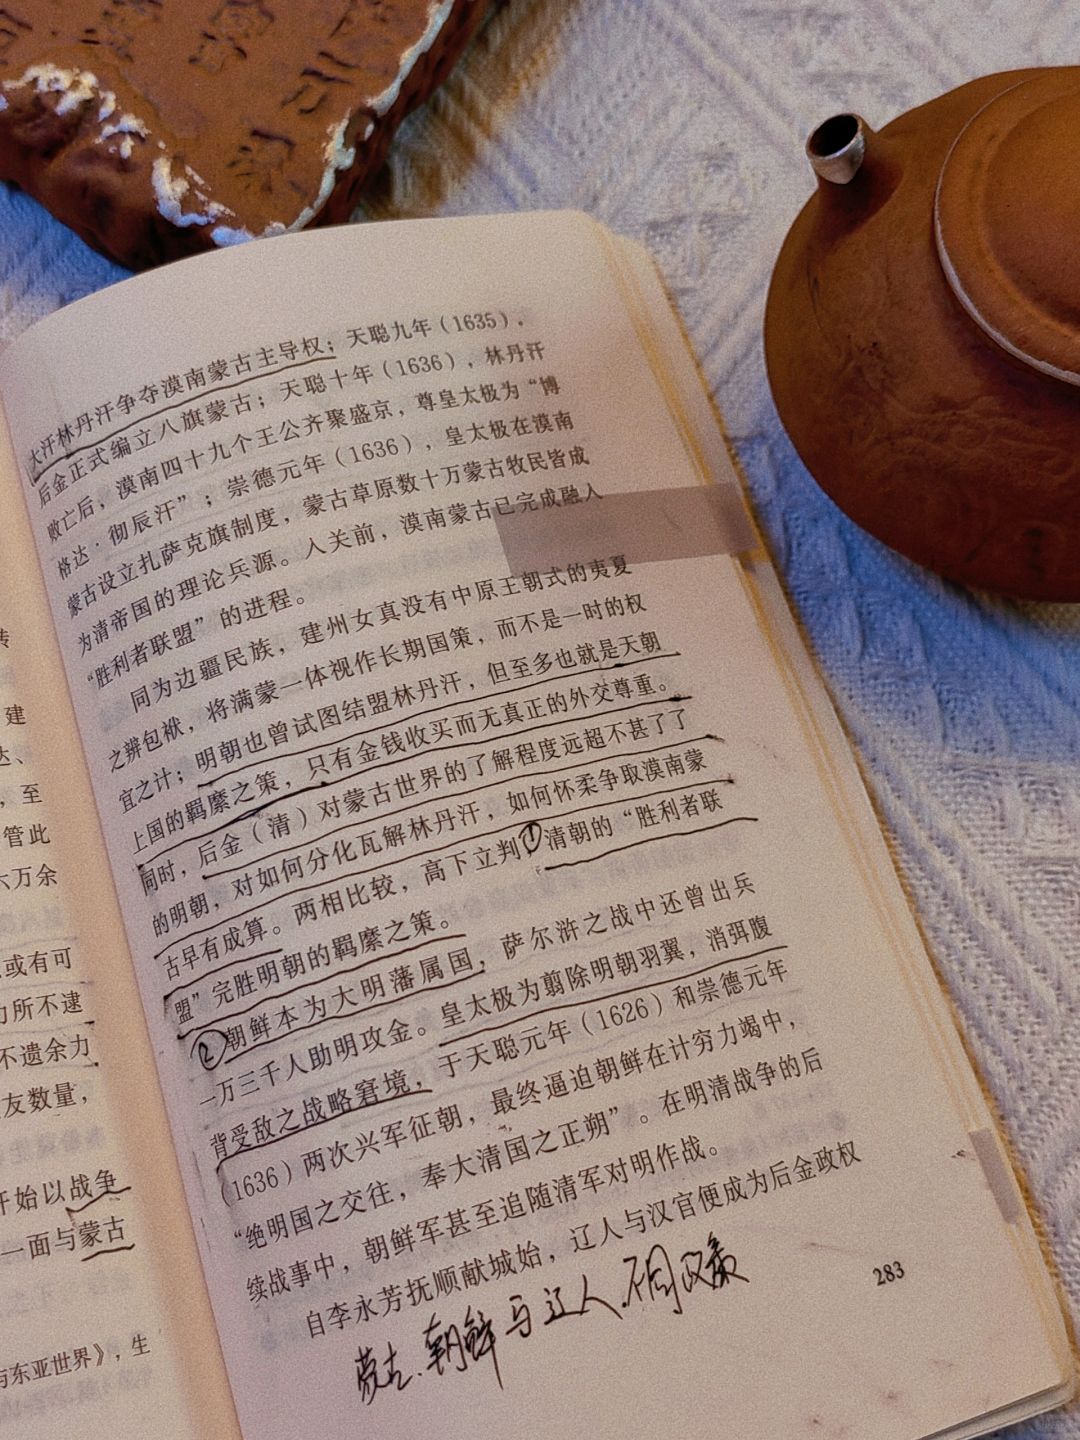 大汗林丹汗争夺漠南蒙古主导权；天聪九年（1635），
后金正式编立八旗蒙古；天聪十年（1636），林丹汗
败亡后，漠南四十九个王公齐聚盛京，尊皇太极为“博
格达·彻辰汗”；崇德元年（1636），皇太极在漠南
蒙古设立扎萨克旗制度，蒙古草原数十万蒙古牧民皆成
为清帝国的理论兵源。入关前，漠南蒙古已完成融入
“胜利者联盟”的进程。
同为边疆民族，建州女真没有中原王朝式的夷夏
之辨包袱，将满蒙一体视作长期国策，而不是一时的权
宜之计；明朝也曾试图结盟林丹汗，但至多也就是天朝
上国的羁縻之策，只有金钱收买而无真正的外交尊重。
同时，后金（清）对蒙古世界的了解程度远超不甚了了
的明朝，对如何分化瓦解林丹汗，如何怀柔争取漠南蒙
古早有成算。两相比较，高下立判①清朝的“胜利者联
盟”完胜明朝的羁縻之策。
②朝鲜本为大明藩属国，萨尔浒之战中还曾出兵
一万三千人助明攻金。皇太极为翦除明朝羽翼，消弭腹
背受敌之战略窘境，于天聪元年（1626）和崇德元年
（1636）两次兴军征朝，最终逼迫朝鲜在计穷力竭中，
“绝明国之交往，奉大清国之正朔”。在明清战争的后
续战事中，朝鲜军甚至追随清军对明作战。
自李永芳抚顺献城始，辽人与汉官便成为后金政权
蒙古、朝鲜与辽人、不同政策
283
建
达、
，至
管此
六万余
或有可
力所不逮
不遗余力
友数量，
开始以战争
一面与蒙古
与东亚世界》，生